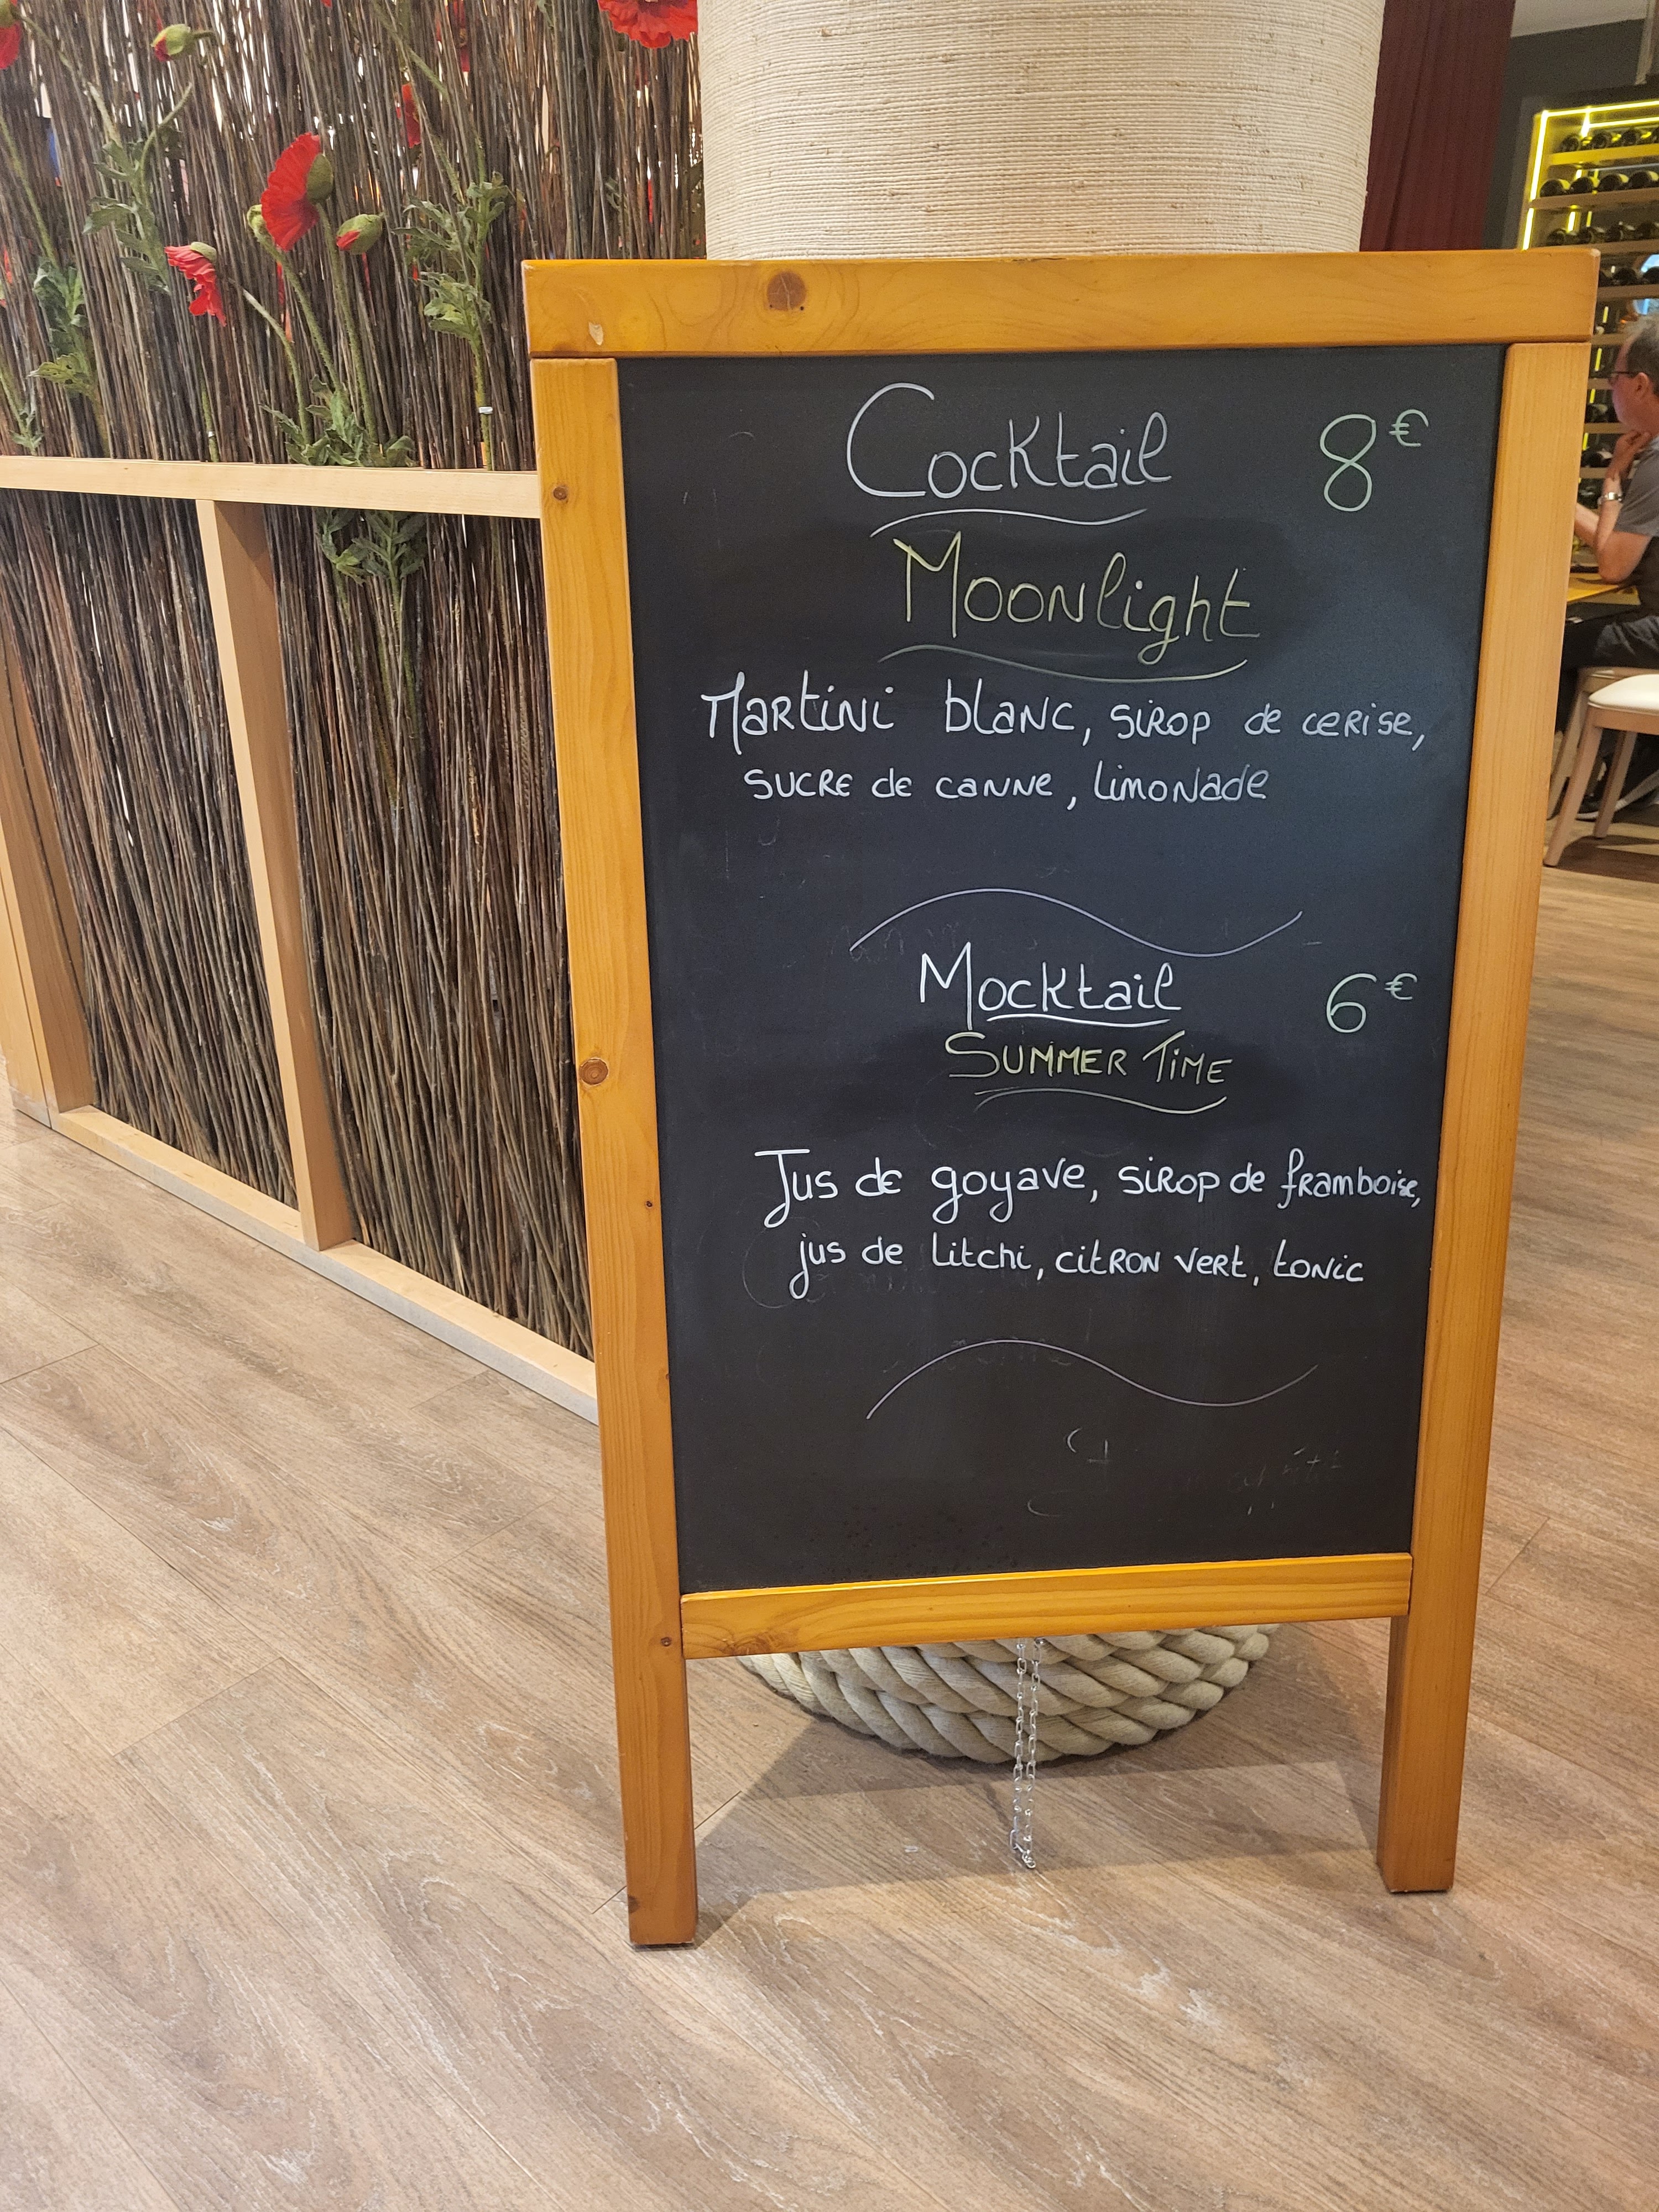 Cocktail 8€
Moonlight
Martini blanc, sirop de cerise,
sucre de canne, limonade
Mocktail 6€
SUMMER TIME
Jus de goyave, sirop de framboise,
jus de litchi, citron vert, tonic